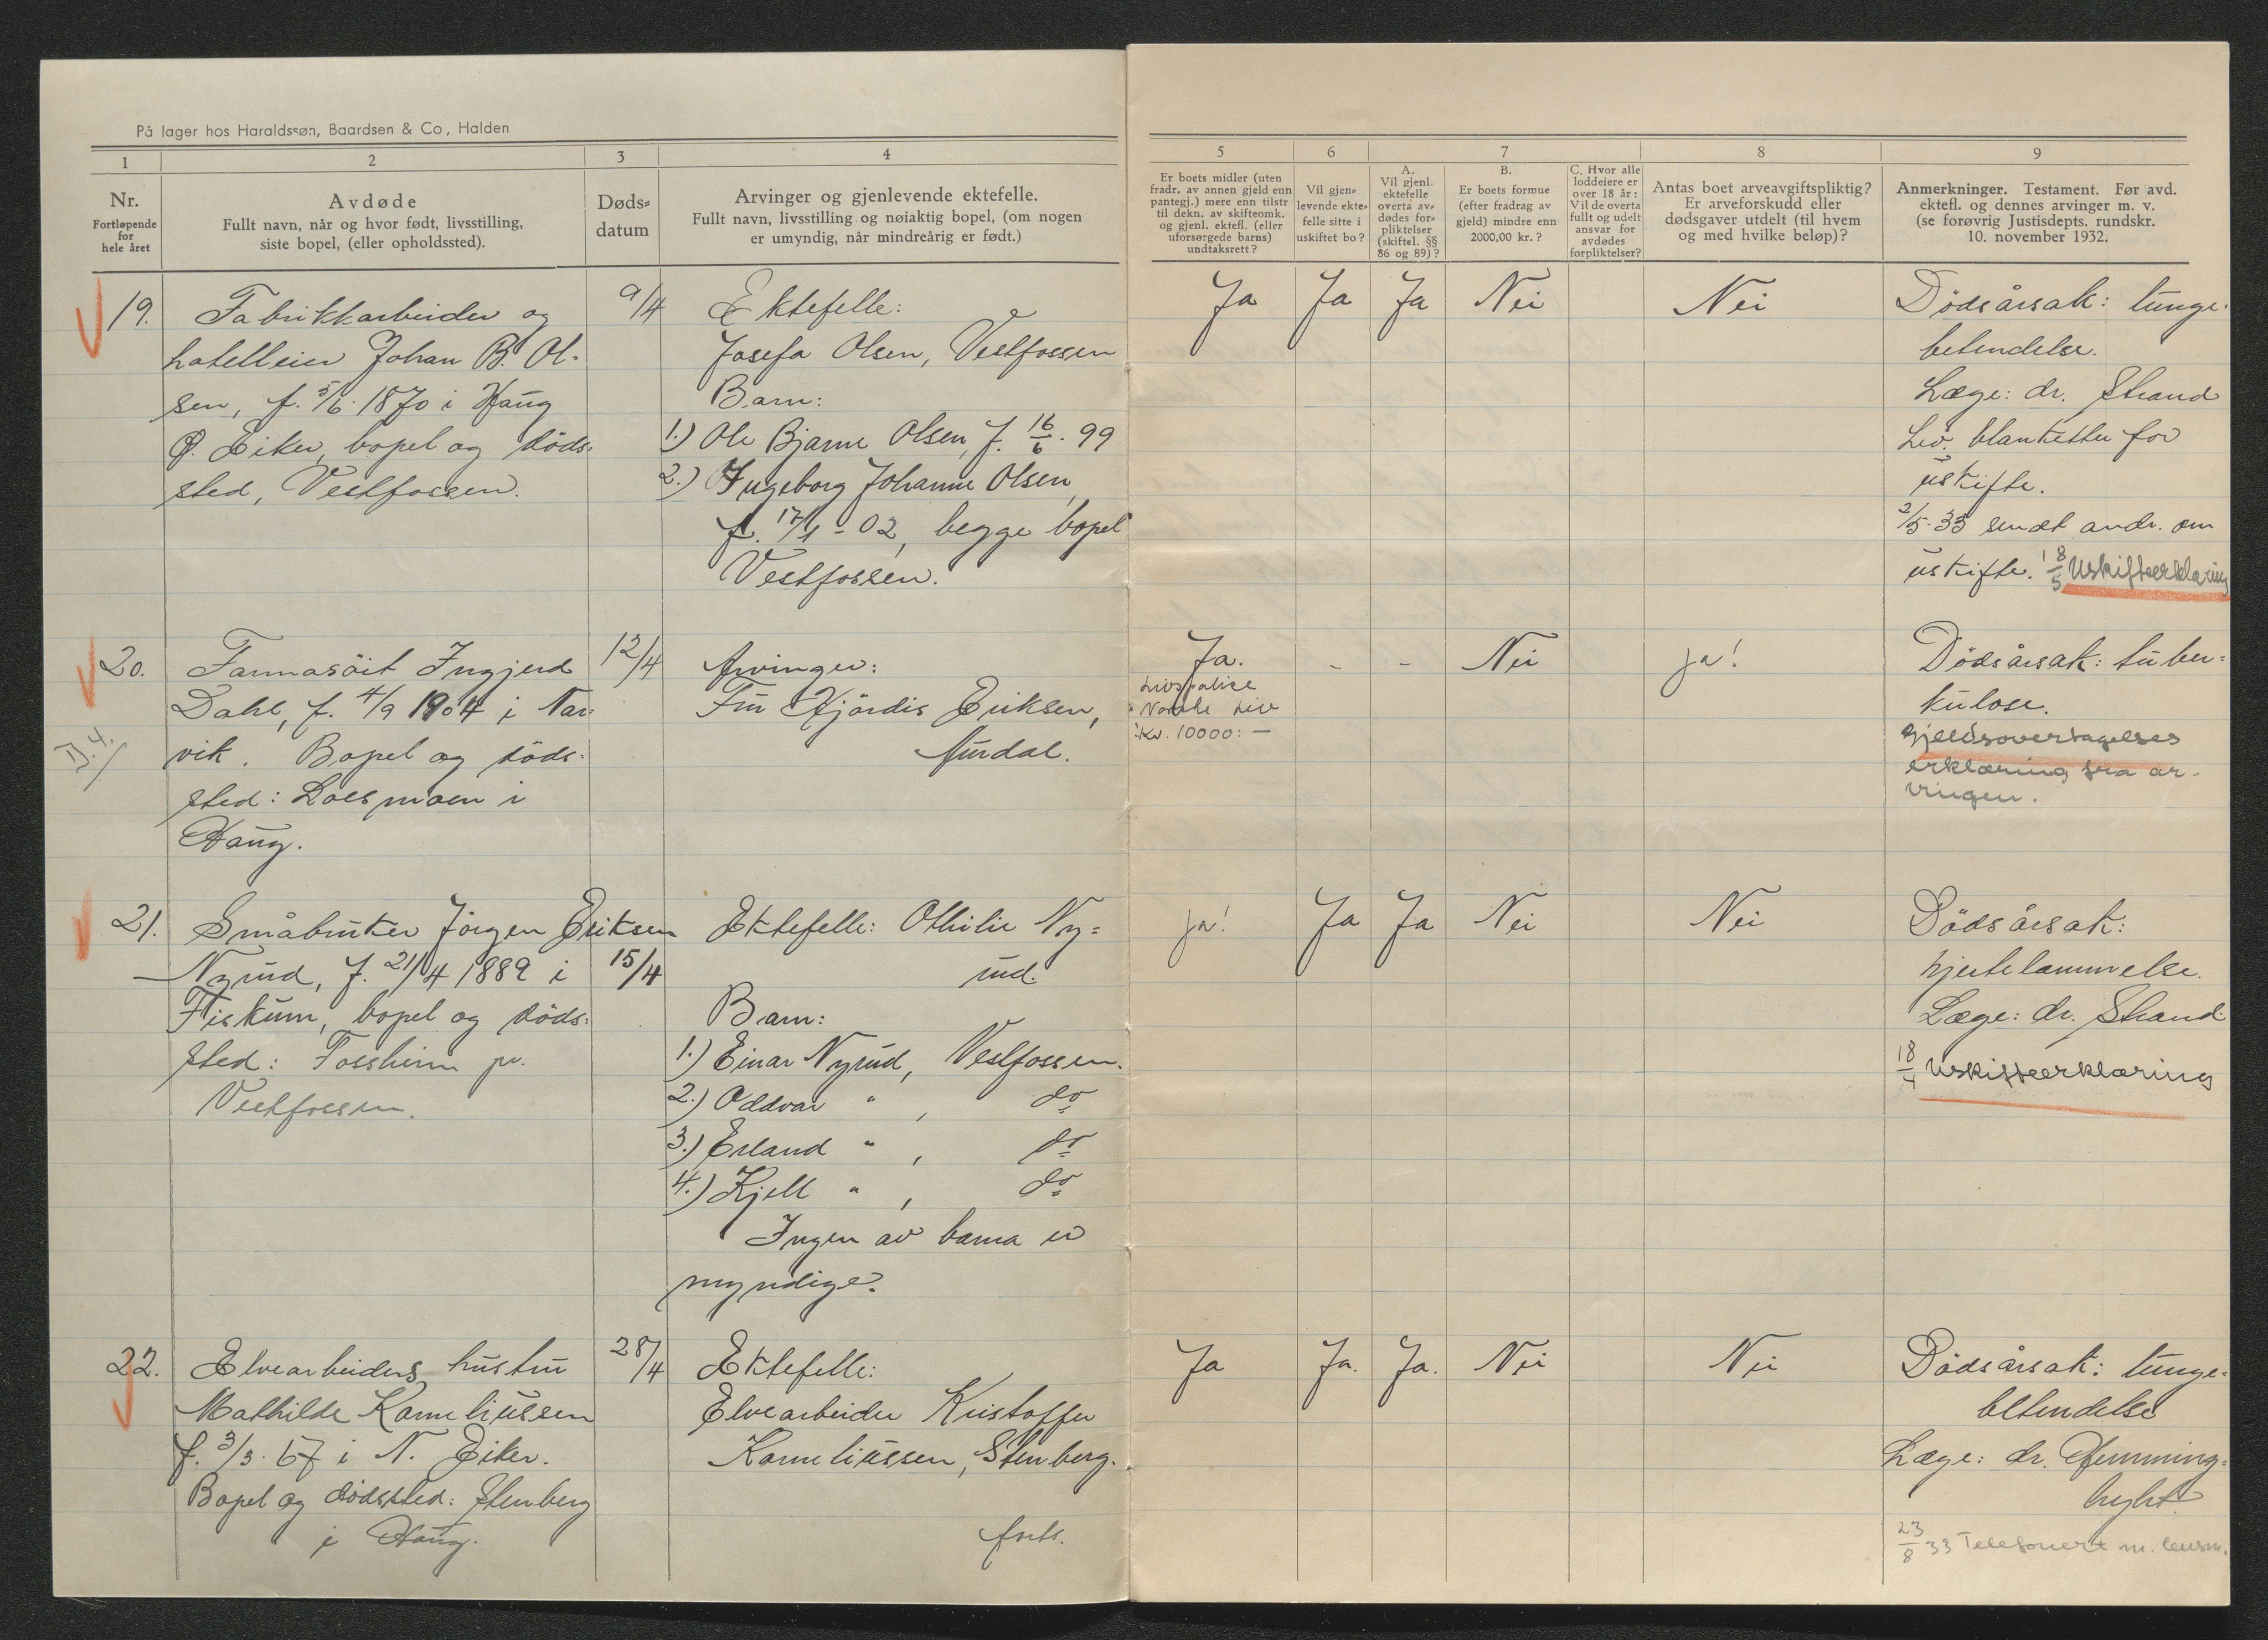 På lager hos Haraldssøn, Baardsen & Co, Halden
1
2
3
4
5
6
7
8
9
Nr.
Fortløpende
for
hele året
Avdøde
Fullt navn, når og hvor født, livsstilling,
siste bopel, (eller opholdssted).
Døds-
datum
Arvinger og gjenlevende ektefelle.
Fullt navn, livsstilling og nøiaktig bopel, (om nogen
er umyndig, når mindreårig er født.)
Er boets midler (uten
fradr. av annen gjeld enn
pantegj.) mere enn tilstr
til dekn. av skifteomk.
og gjenl. ektefl. (eller
uforsørgede barns)
undtaksrett?
Vil gjen-
levende ekte-
felle sitte i
uskiftet bo?
A.
Vil gjenl.
ektefelle
overta av-
dødes for-
pliktelser
(skiftel. §§
86 og 89)?
B.
Er boets formue
(efter fradrag av
gjeld) mindre enn
2000,00 kr.?
C. Hvor alle
loddeiere er
over 18 år:
Vil de overta
fullt og udelt
ansvar for
avdødes
forpliktelser?
Antas boet arveavgiftspliktig?
Er arveforskudd eller
dødsgaver utdelt (til hvem
og med hvilke beløp)?
Anmerkninger. Testament. Før avd.
ektefl. og dennes arvinger m. v.
(se forøvrig Justisdepts. rundskr.
10. november 1932.
19.
Fabrikkarbeider og
hotelleier Johan B. Ol-
sen, f. 5/6. 1870 i Haug
Ø. Eiker, bopel og döds-
sted, Vestfossen.
9/4
Ektefelle:
Josefa Olsen, Vestfossen
Barn:
1.) Ole Bjarne Olsen, f. 16/6. 99
2.) Ingeborg Johanne Olsen,
f. 17/1 - 02, begge bopel
Vestfossen.
Ja
Ja
Ja
Nei
Nei
Dödsårsak: lunge-
betendelse.
Læge: dr. Strand
Lev. blanketter for
uskifte.
2/5-33 sendt andr. om
uskifte. 18/5 Uskifteerklæring
20.
Frk. Ingjerd
Dahl, f. 4/9 1904 i Nar-
vik. Bopel og döds-
sted: Loesmoen i
Haug.
12/4
Arvinger:
Fru Hjördis Eriksen,
Aurdal.
Ja.
Livspolise
Norske Liv
Kr. 10000:-
-
-
Nei
Ja!
Dödsårsak: tuber-
kulose.
Gjeldsovertagelses
erklæring fra ar-
vingen.
21.
Småbruker Jörgen Eriksen
Nyrud, f. 21/4 1889 i
Fiskum, bopel og döds-
sted: Fossheim pr.
Vestfossen.
15/4
Ektefelle: Othilie Ny-
rud.
Barn:
1.) Einar Nyrud, Vestfossen.
2.) Oddvar " , do
3.) Erland " , do
4.) Kjell " , do
Ingen av barna er
myndige.
Ja!
Ja
Ja
Nei
Nei
Dödsårsak:
hjertelammelse.
Læge: dr. Strand.
18/4 Uskifteerklæring
22.
Elvearbeiders hustru
Mathilde Korneliussen
f. 3/3. 67 i N. Eiker.
Bopel og dödssted: Stenberg
i Haug.
28/4
Ektefelle:
Elvearbeider Kristoffer
Korneliussen, Stenberg.
forts.
Ja
Ja.
Ja.
Nei
Nei
Dödsårsak: lunge-
betendelse
Læge: dr. Flemming-
23/8 33 Telefonert m. lensm.